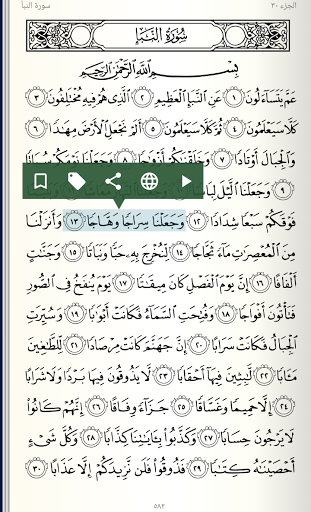 الجزء ٣٠ سورة النبأ
سُورَةُ النَّبَإِ
بِسْمِ ٱللَّهِ ٱلرَّحْمَٰنِ ٱلرَّحِيمِ
عَمَّ يَتَسَآءَلُونَ ١ عَنِ ٱلنَّبَإِ ٱلْعَظِيمِ ٢ ٱلَّذِى هُمْ فِيهِ مُخْتَلِفُونَ ٣
كَلَّا سَيَعْلَمُونَ ٤ ثُمَّ كَلَّا سَيَعْلَمُونَ ٥ أَلَمْ نَجْعَلِ ٱلْأَرْضَ مِهَٰدًا ٦
وَٱلْجِبَالَ أَوْتَادًا ٧ وَخَلَقْنَٰكُمْ أَزْوَٰجًا ٨ وَجَعَلْنَا نَوْمَكُمْ سُبَاتًا
٩ وَجَعَلْنَا ٱلَّيْلَ لِبَاسًا
فَوْقَكُمْ سَبْعًا شِدَادًا ١٢ وَجَعَلْنَا سِرَاجًا وَهَّاجًا ١٣ وَأَنزَلْنَا
مِنَ ٱلْمُعْصِرَٰتِ مَآءً ثَجَّاجًا ١٤ لِّنُخْرِجَ بِهِۦ حَبًّا وَنَبَاتًا ١٥ وَجَنَّٰتٍ
أَلْفَافًا ١٦ إِنَّ يَوْمَ ٱلْفَصْلِ كَانَ مِيقَٰتًا ١٧ يَوْمَ يُنفَخُ فِى ٱلصُّورِ
فَتَأْتُونَ أَفْوَاجًا ١٨ وَفُتِحَتِ ٱلسَّمَآءُ فَكَانَتْ أَبْوَٰبًا ١٩ وَسُيِّرَتِ
ٱلْجِبَالُ فَكَانَتْ سَرَابًا ٢٠ إِنَّ جَهَنَّمَ كَانَتْ مِرْصَادًا ٢١ لِّلطَّٰغِينَ
مَـَٔابًا ٢٢ لَّٰبِثِينَ فِيهَآ أَحْقَابًا ٢٣ لَّا يَذُوقُونَ فِيهَا بَرْدًا وَلَا شَرَابًا
٢٤ إِلَّا حَمِيمًا وَغَسَّاقًا ٢٥ جَزَآءً وِفَاقًا ٢٦ إِنَّهُمْ كَانُوا۟
لَا يَرْجُونَ حِسَابًا ٢٧ وَكَذَّبُوا۟ بِـَٔايَٰتِنَا كِذَّابًا ٢٨ وَكُلَّ شَىْءٍ
أَحْصَيْنَٰهُ كِتَٰبًا ٢٩ فَذُوقُوا۟ فَلَن نَّزِيدَكُمْ إِلَّا عَذَابًا ٣٠
٥٨٢